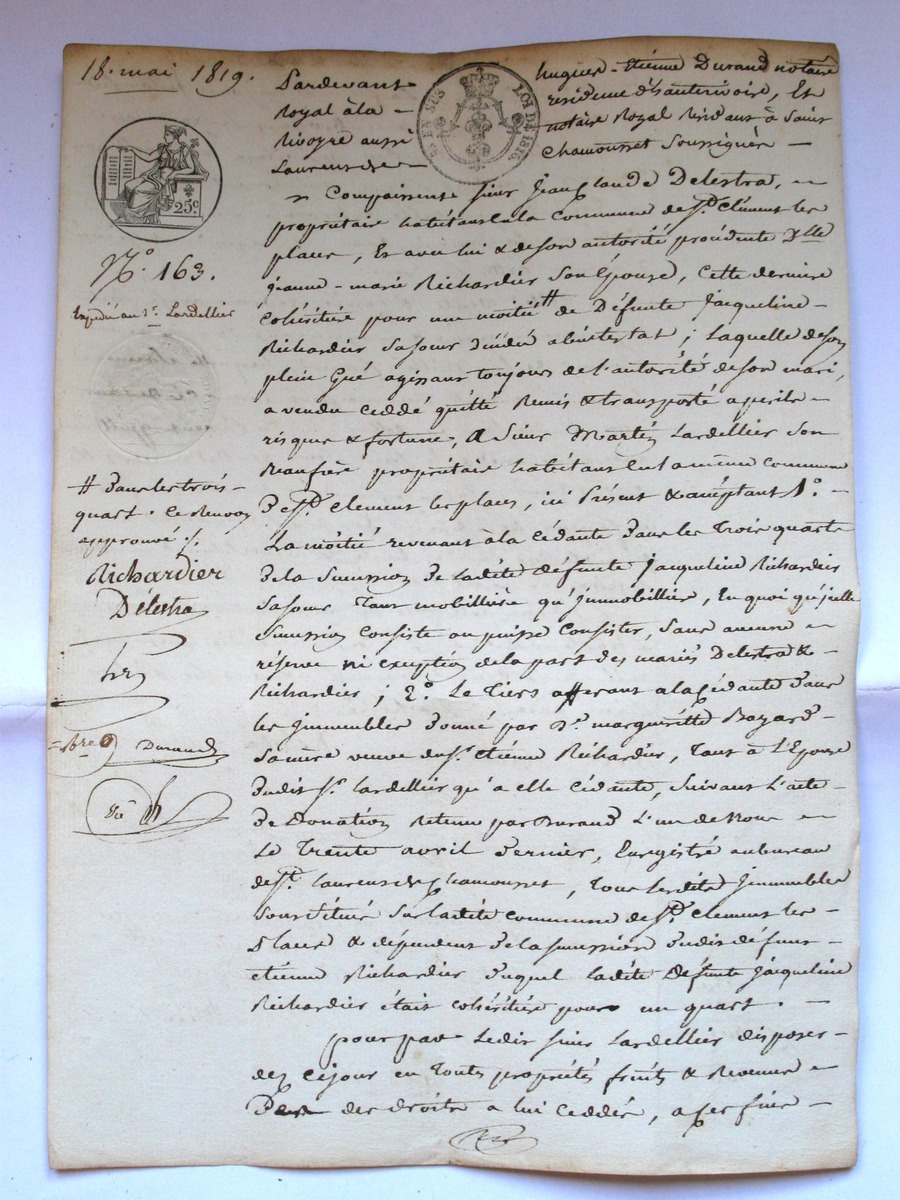 18. mai 1819.
Pardevant hugues-étiènne Durand notaire
Royal à la residence d'hauterivoire, Et
Rivoyre aussi notaire Royal Résidant à Saint
Laurens de Chamousset Soussignés
EN SUS LOI DE 1816.
25c
N.o 163.
Expédié au Sr. Lardellier
Comparaient sieur Jean Claude Delestra,
propriétaire habitant de la Commune de St. Clément les
places, Et avec lui & de son autorité procédente Dlle
jeanne-marie Richardier son Épouse, Cette dernière
Cohéritière pour une moitié # de Défunte Jacqueline
Richardier Sa soeur décédée abintestat ; Laquelle de son
plein Gré agissant toujours de l'autorité de son mari,
a vendu Ceddé quitté Remis & transporté a perils
risques & fortune, A Sieur Martin Lardellier son
Beaufrère propriétaire habitant en la même commune
de St. Clement les places, ici Présent & acceptant 1.o
La moitié revenant à la Cédante dans les Trois quarts
de la succession de Ladite défunte Jacqueline Richardier
Sa soeur Tant mobilliére qu'jmmobillière, En quoi qu'jcelle
succession Consiste ou puisse Consister, Sans aucune
réserve ni exception de la part des mariés Delestra &
Richardier ; 2.o Le Tiers afferant a la Cédante dans
les jmmeubles donné par De. marguerite Bazard
Sa mère veuve du Sr. étienne Richardier, Tant à L'Epouse
dudit Sr. Lardellier qu'à elle Cédante, Suivant L'acte
de Donation Retenu par Durand L'un de nous
Le Trente avril dernier, Enregistré au bureau
de St. Laurens de Chamousset, Tous lesdits jmmeubles
sont situés Sur ladite commune de St. Clement les
Places & dépendent de la succession dudit défunt
étienne Richardier duquel Ladite Défunte Jacqueline
Richardier était cohéritière pour un quart.
pour par Ledit sieur Lardellier disposer
dez Céjour en Toute propriétés fruits & Revenus
des droits a lui Ceddés, a ses fins
# dans les trois
quart. Ce Renvoy
approuvé ./.
Richardier
Délestra
Durand